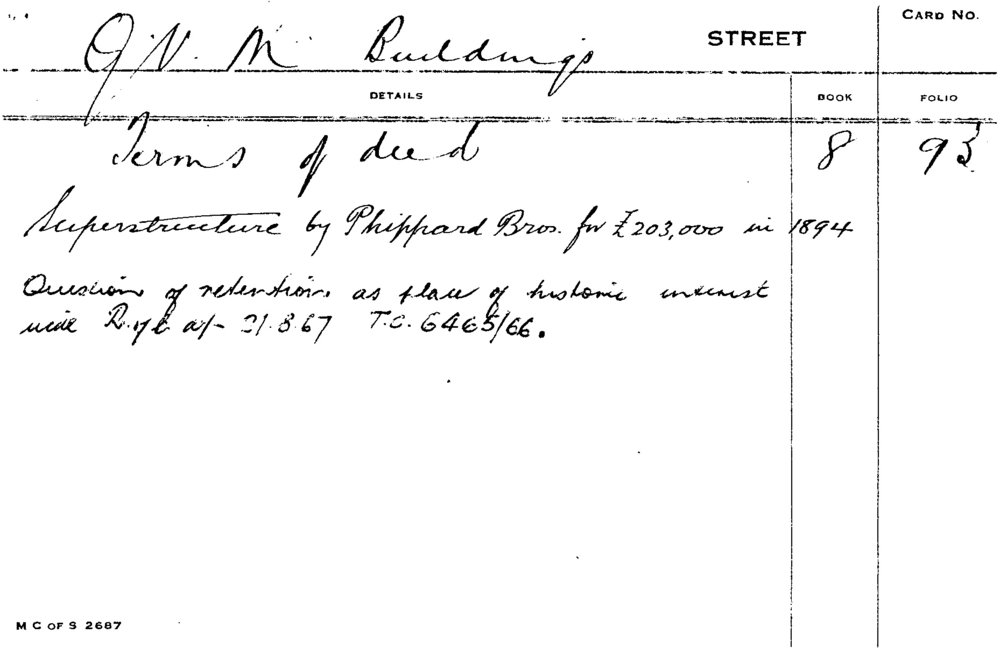 Q. V. M. Buildings STREET CARD NO.
DETAILS BOOK FOLIO
Terms of deed 8 93
Superstructure by Phippard Bros. for £203,000 in 1894
Question of retention as place of historic interest
vide R. of C. of 21.8.67 T.C. 6465/66.
M C OF S 2687